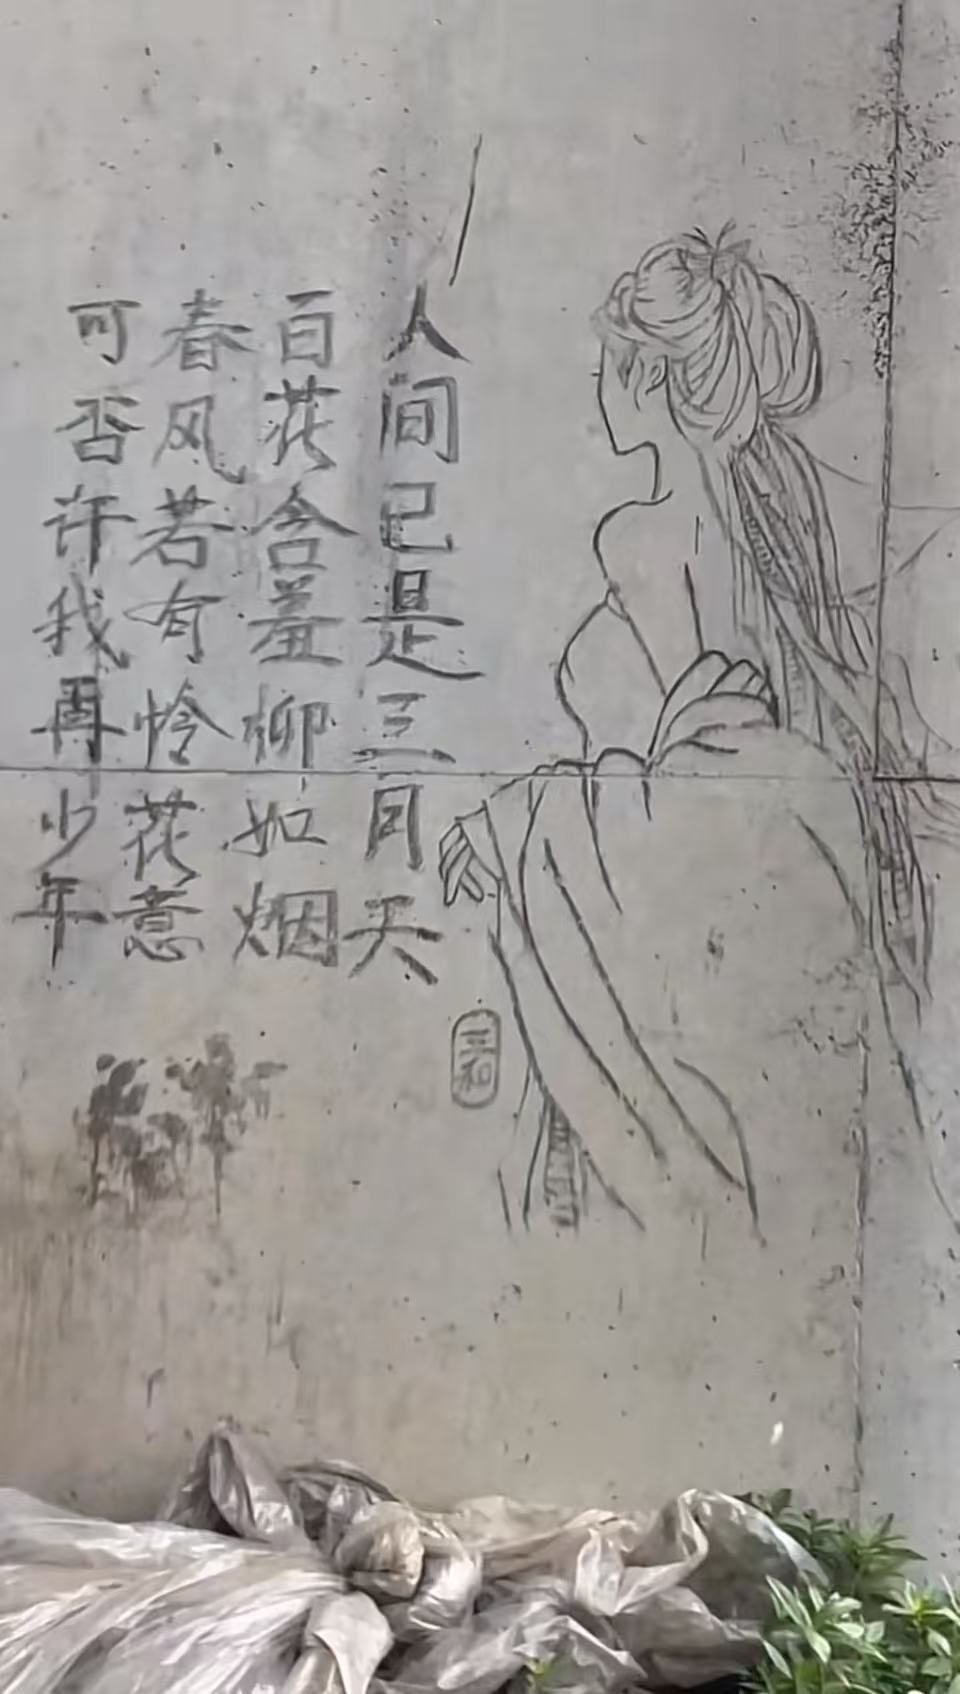 人间已是三月天
百花含羞柳如烟
春风若有怜花意
可否许我再少年
三和